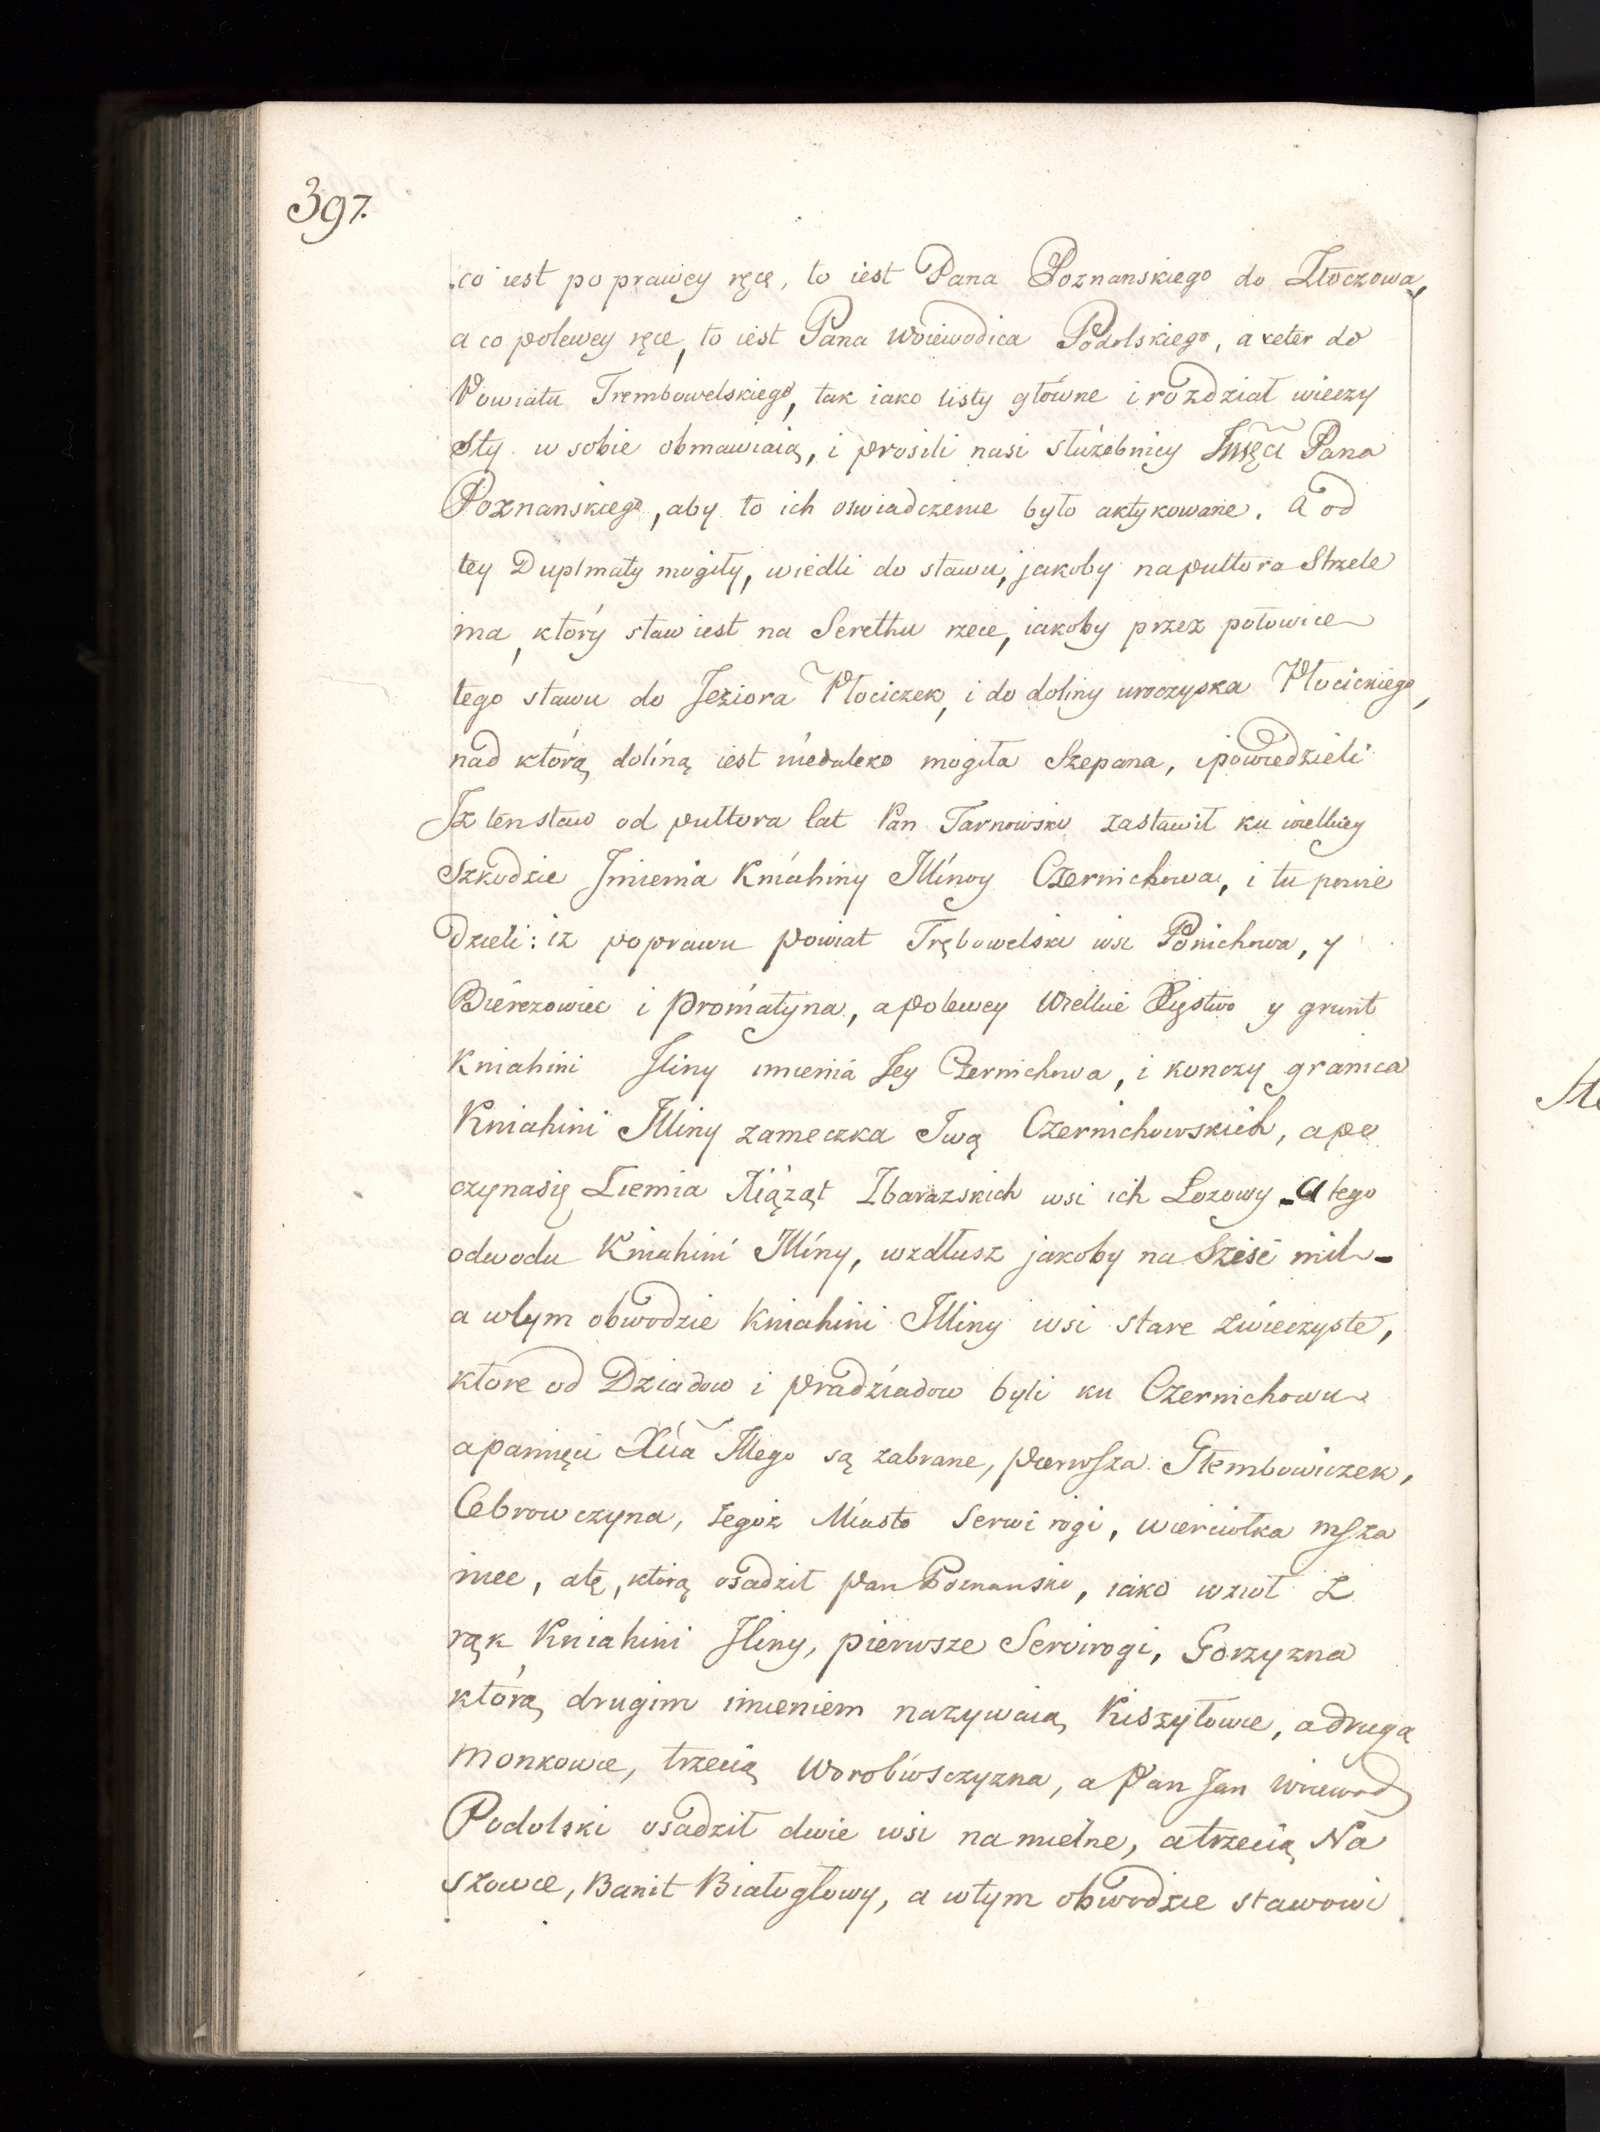 397.
co iest po prawey ręcę, to iest Pana Poznanskiego do Złoczowa,
a co polewey ręce, to iest Pana Woiewodica Podolskiego, a xeter do
Powiatu Trembowelskiego, tak iako listy główne i rozdział wieczy
sty w sobie obmawiaią, i prosili nasi służebnicy Jmęci Pana
Poznanskiego, aby to ich oswiadczenie było aktykowane. A od
tey Duplmaty mogiły, wiedli do stawu, jakoby napułtora Strzele
ma, który staw iest na Serethu rzece, iakoby przez połowice
tego stawu do Jeziora Płociczek, i do doliny uroczyska Płocickiego,
nad którą doliną iest niedaleko mogiła Szepana, ipowiedzieli
Iż ten staw od pułtora lat Pan Tarnowski zastawił ku wielkiey
Szkodzie Jmienia Kniahiny Illiney Czernichowa, i tu powie
dzieli: iż poprawu Powiat Trębowelski wsi Ponichowa, y
Bierezowiec i Promatyna, a polewey Wielkie Xięstwo y grunt
Kniahini Iliny imienia Jey Czernichowa, i konczy granica
Kniahini Illiny zameczka Twą Czernichowskich, apo
czynasię Ziemia Xiążąt Zbarazskich wsi ich Lozowy - a tego
odwodu Kniahini Illiny, wzdłusz jakoby na Sześć mil -
a wtym obwodzie Kniahini Illiny wsi stare zwieczyste,
ktore od Dziadow i pradziadow byli ku Czernichowu
apamięci Xcia Illego są zabrane, pierwsza Głembowiczek,
Cebrowczyna, tegoż Miasto Serwi rogi, wierciołka msza
niec, atę, którą osadził Pan Poznanski, iako wzioł z
rąk Kniahini Iliny, pierwsze Servirogi, Gorzyzna
którą drugim imieniem nazywaią Kiszyłowce, a druga
Monkowce, trzecią Worobiwsczyzna, a Pan Jan Wiewod
Podolski osadził dwie wsi na mielne, a trzecią Na
szowce, Banit Białogłowy, a wtym obwodzie stawowi